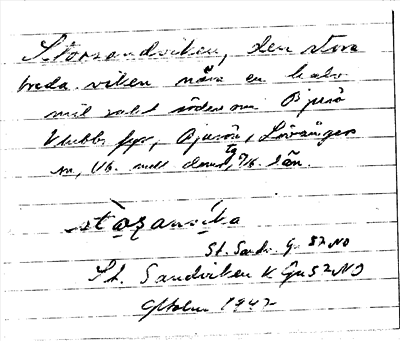 Storsandviken, den stora
breda viken nära en halv
mil rakt söder om Bjurö
klubbs fyr, Bjurön, Lövånger
sn, Vb.
stòrsanvíka
St. Sandv. G 52 NO
St. Sandviken K Gu 52 NO
Oktober 1942